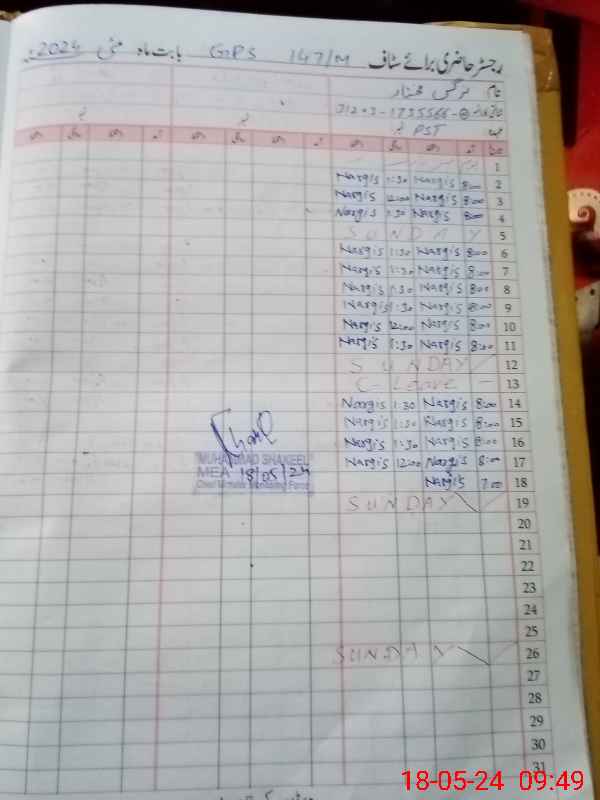 رجسٹر حاضری برائے سٹاف GPS 147/M بابت ماہ مئی 2024ء
نام نرگس ممتاز
31203-1735566-
عہدہ PST
1
Nargis 1:30 Nargis 8:00 2
Nargis 12:00 Nargis 8:00 3
Nargis 1:30 Nargis 8:00 4
SUNDAY 5
Nargis 1:30 Nargis 8:00 6
Nargis 1:30 Nargis 8:00 7
Nargis 1:30 Nargis 8:00 8
Nargis 1:30 Nargis 8:00 9
Nargis 12:00 Nargis 8:00 10
Nargis 1:30 Nargis 8:00 11
SUNDAY 12
C- Leave 13
Nargis 1:30 Nargis 8:00 14
Nargis 1:30 Nargis 8:00 15
Nargis 1:30 Nargis 8:00 16
Nargis 12:00 Nargis 8:00 17
Nargis 7:00 18
SUNDAY 19
20
21
22
23
24
25
SUNDAY 26
27
28
29
30
31
"MUHAMMAD SHAKEEL"
MEA 18/05/24
Chief Minister Monitoring Force
18-05-24 09:49